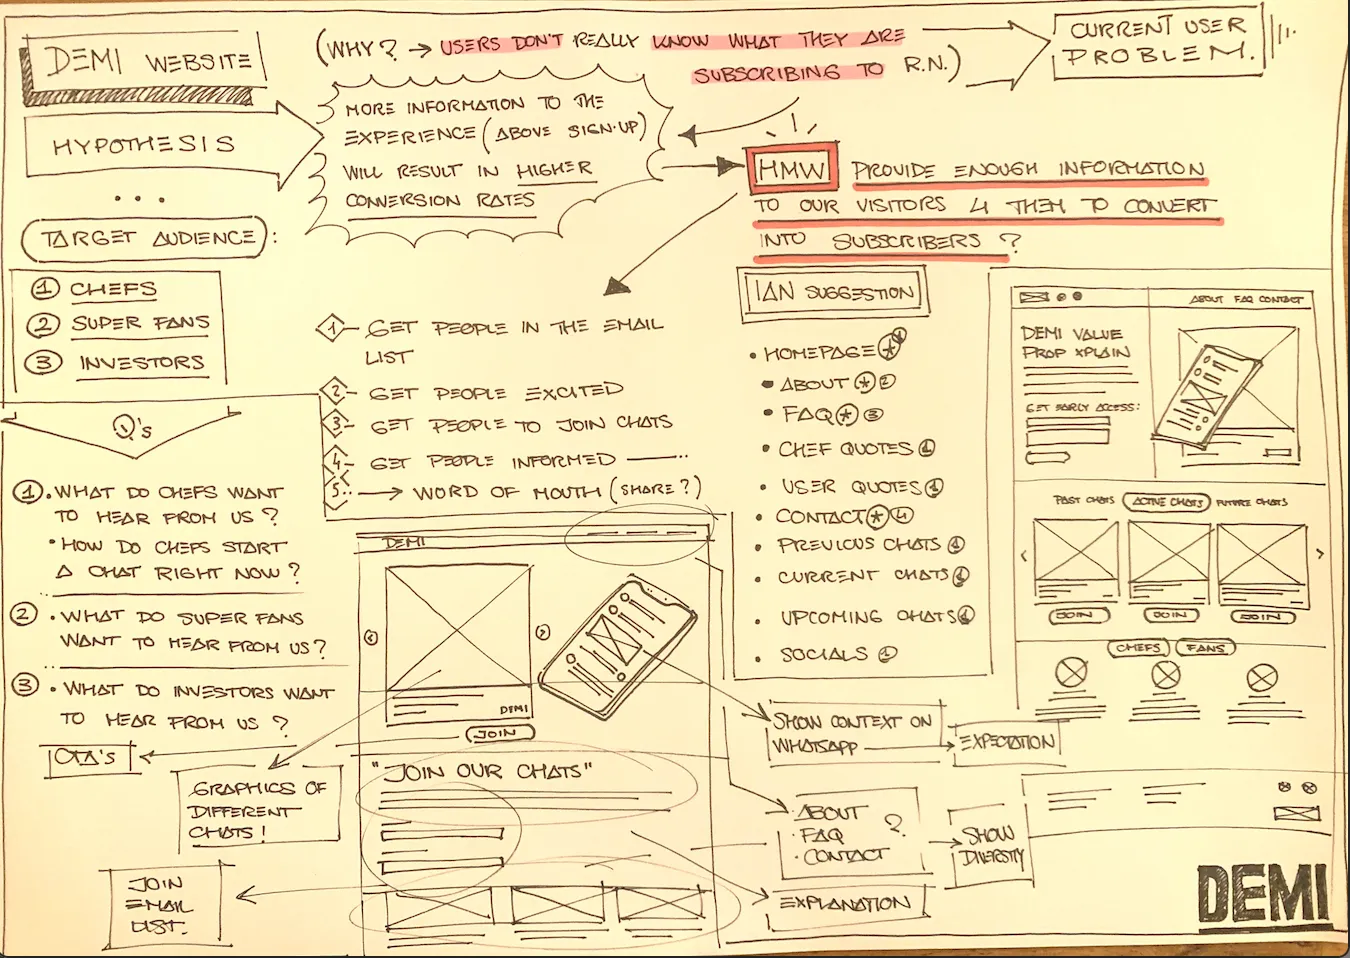 DEMI WEBSITE
(WHY? → USERS DON'T REALLY KNOW WHAT THEY ARE
SUBSCRIBING TO R.N.)
CURRENT USER
PROBLEM.
HYPOTHESIS
MORE INFORMATION TO THE
EXPERIENCE (ABOVE SIGN-UP)
WILL RESULT IN HIGHER
CONVERSION RATES
HMW PROVIDE ENOUGH INFORMATION
TO OUR VISITORS 4 THEM TO CONVERT
INTO SUBSCRIBERS ?
...
TARGET AUDIENCE:
1 CHEFS
2 SUPER FANS
3 INVESTORS
1 GET PEOPLE IN THE EMAIL
LIST
2 GET PEOPLE EXCITED
3 GET PEOPLE TO JOIN CHATS
4 GET PEOPLE INFORMED
5.. → WORD OF MOUTH (SHARE?)
Q's
1. WHAT DO CHEFS WANT
TO HEAR FROM US?
• HOW DO CHEFS START
A CHAT RIGHT NOW?
2 • WHAT DO SUPER FANS
WANT TO HEAR FROM US?
3 • WHAT DO INVESTORS WANT
TO HEAR FROM US ?
CTA'S
GRAPHICS OF
DIFFERENT
CHATS!
JOIN
EMAIL
LIST.
DEMI
DEMI
JOIN
"JOIN OUR CHATS"
IAN SUGGESTION
• HOMEPAGE * 1
• ABOUT * 2
• FAQ * 3
• CHEF QUOTES 1
• USER QUOTES 1
• CONTACT * 4
• PREVIOUS CHATS 1
• CURRENT CHATS 1
• UPCOMING CHATS 1
• SOCIALS 1
SHOW CONTEXT ON
WHATSAPP
EXPECTATION
• ABOUT
• FAQ ?
• CONTACT
SHOW
DIVERSITY
EXPLANATION
ABOUT FAQ CONTACT
DEMI VALUE
PROP XPLAIN
GET EARLY ACCESS:
PAST CHATS ACTIVE CHATS FUTURE CHATS
JOIN JOIN JOIN
CHEFS FANS
DEMI